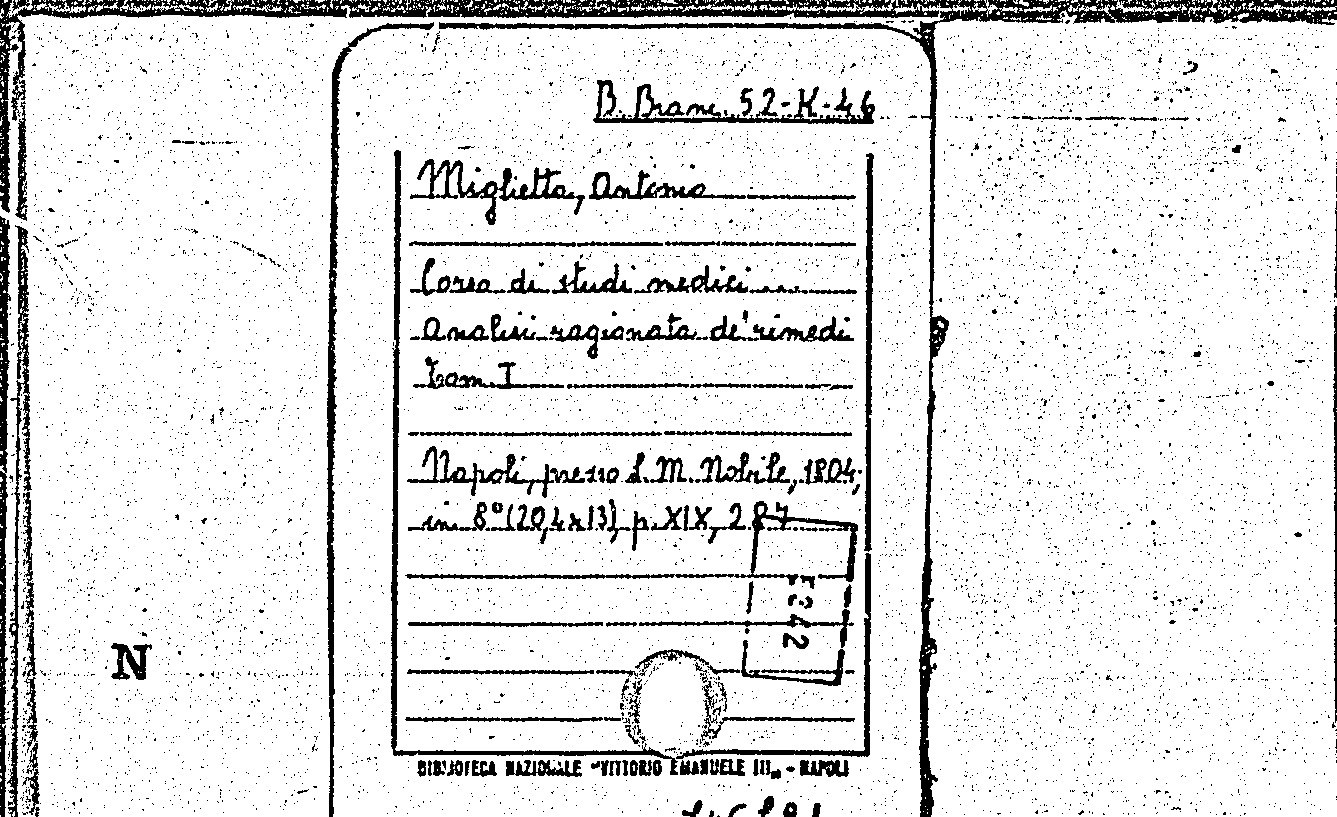 B. Branc. 52-K-46
Miglietta, Antonio
Corso di studi medici ...
Analisi ragionata de' rimedi
Tom. I
Napoli, presso L. M. Nobile, 1804;
in 8° (20,4x13), p. XIX, 287
5242
N
BIBLIOTECA NAZIONALE "VITTORIO EMANUELE III" - NAPOLI